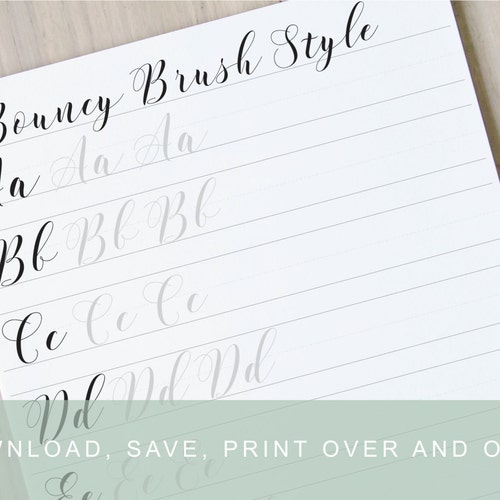 Bouncy Brush Style
Aa Aa Aa
Bb Bb Bb
Cc Cc Cc
Dd Dd Dd
WNLOAD, SAVE, PRINT OVER AND O
Ee Ee Ee